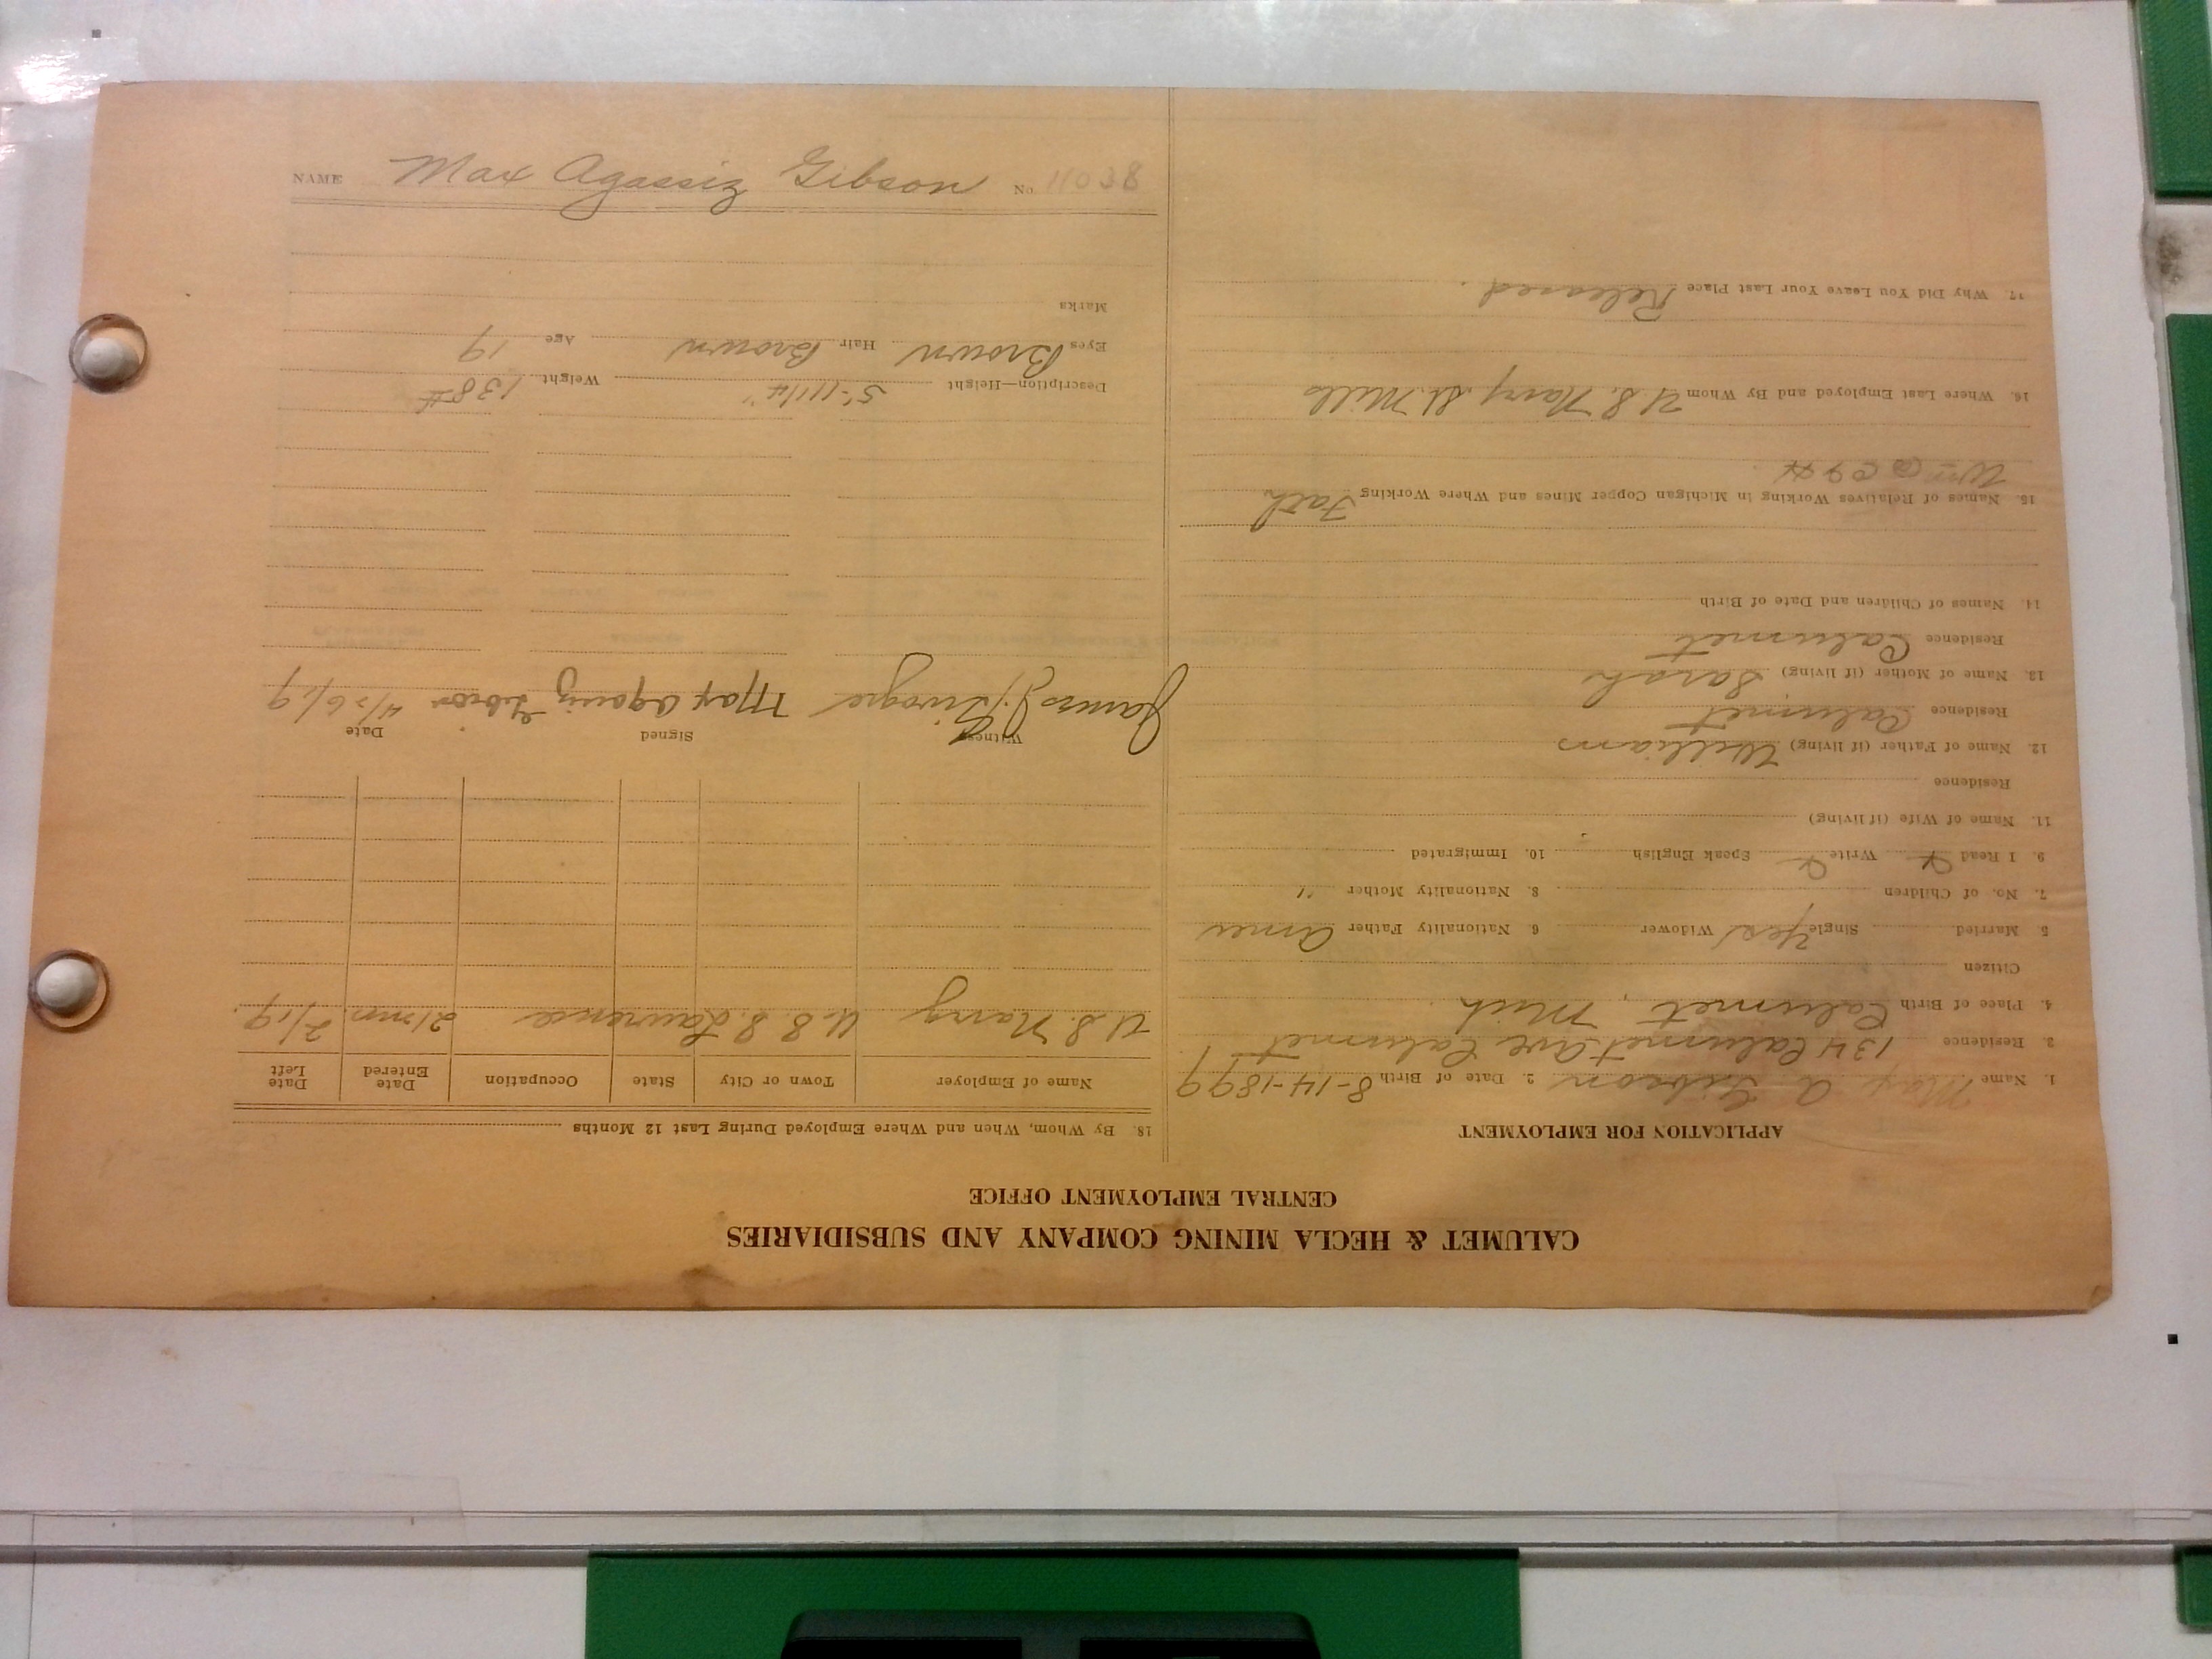 NAME Max Agassiz Gibson No. 11038
CALUMET & HECLA MINING COMPANY AND SUBSIDIARIES
CENTRAL EMPLOYMENT OFFICE
APPLICATION FOR EMPLOYMENT
1. Name Max A Gibson 2. Date of Birth 8-14-1899
3. Residence 134 Calumet Ave Calumet
4. Place of Birth Calumet, Mich
Citizen
5. Married Single Yes Widower 6. Nationality Father Amer
7. No. of Children 8. Nationality Mother "
9. I Read Write Speak English 10. Immigrated
11. Name of Wife (if living)
Residence
12. Name of Father (if living) William
Residence Calumet
13. Name of Mother (if living) Sarah
Residence Calumet
14. Names of Children and Date of Birth
15. Names of Relatives Working in Michigan Copper Mines and Where Working Fath
Wm @ C & H
16. Where Last Employed and By Whom U.S. Navy
17. Why Did You Leave Your Last Place Released.
18. By Whom, When and Where Employed During Last 12 Months
Name of Employer Town or City State Occupation Date Entered Date Left
U.S. Navy U.S.S. Lawrence 2/19.
Witness Signed Date
James Max Agassiz Gibson 4/26/19
Description—Height 5'-11 1/4" Weight 138#
Eyes Brown Hair Brown Age 19
Marks